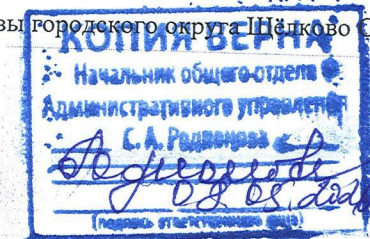 вы городского округа Щёлково С
КОПИЯ ВЕРНА
Начальник общего отдела
Административного управления
С. А. Родионова
(подпись ответственного лица)